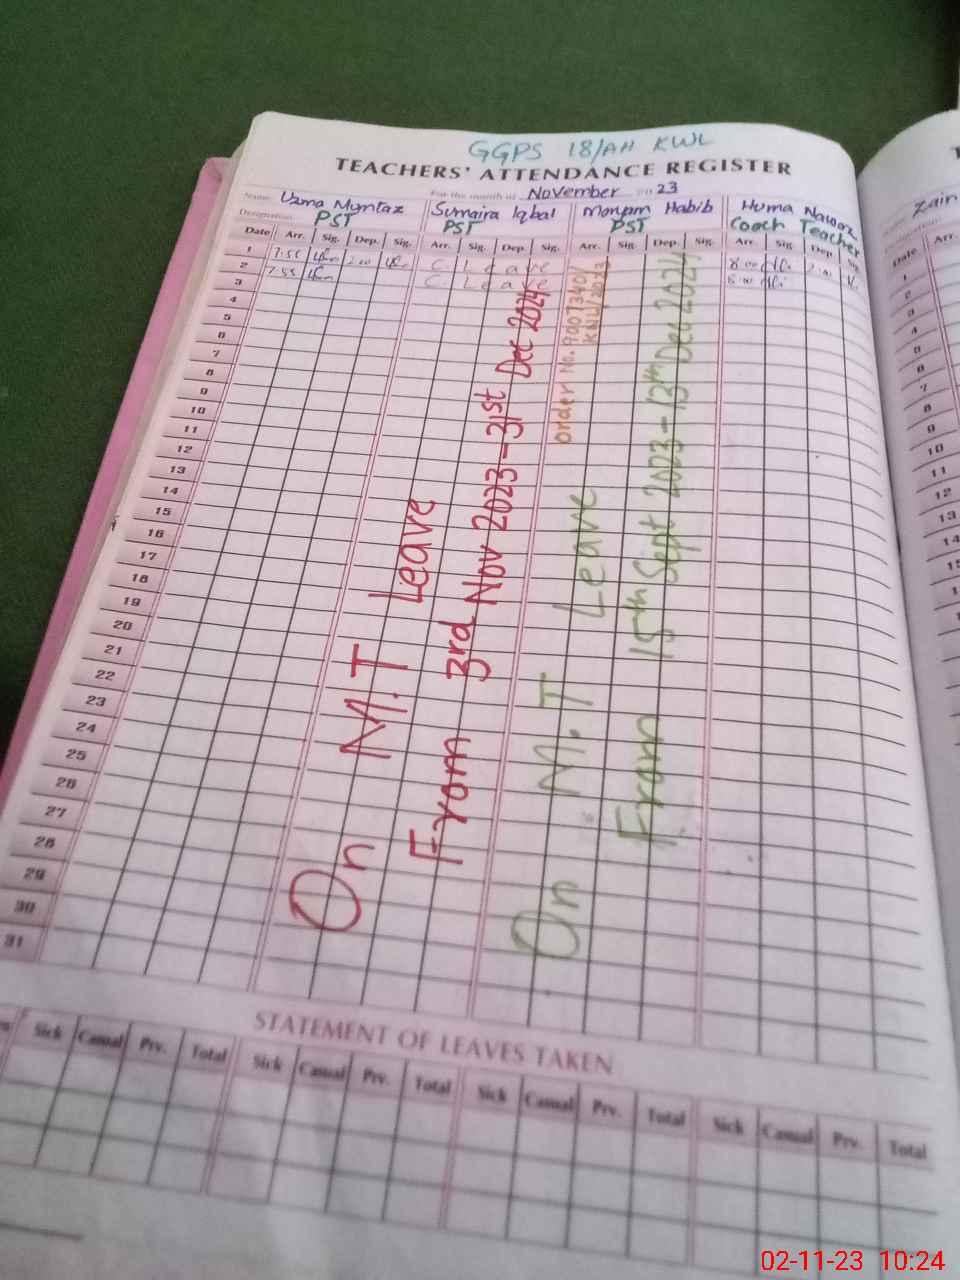 GGPS 18/AH KWL
TEACHERS' ATTENDANCE REGISTER
Name Uzma Mumtaz
For the month of November 2023
Designation PST
Sumaira Iqbal
PST
Maryam Habib
PST
Huma Nawaz
Coach Teacher
Zain
Date Arr. Sig. Dep. Sig. Arr. Sig. Dep. Sig. Arr. Sig. Dep. Sig. Arr. Sig. Dep. Sig.
Date Arr.
1 7.55 2.00 C. Leave 8.00
2 7.55 C. Leave 8.00
3
4
5
6
7
8
9
10
11
12
13
14
15
16
17
18
19
20
21
22
23
24
25
26
27
28
29
30
31
On M.T Leave
From 3rd Nov 2023 - 31st Dec 2024
order No. 9007340/
KNL/2023
On M.T Leave
From 15th Sept 2023 - 13th Dec 2024
1
2
3
4
5
6
7
8
9
10
11
12
13
14
15
STATEMENT OF LEAVES TAKEN
Sick Casual Prv. Total Sick Casual Prv. Total Sick Casual Prv. Total Sick Casual Prv. Total
02-11-23 10:24